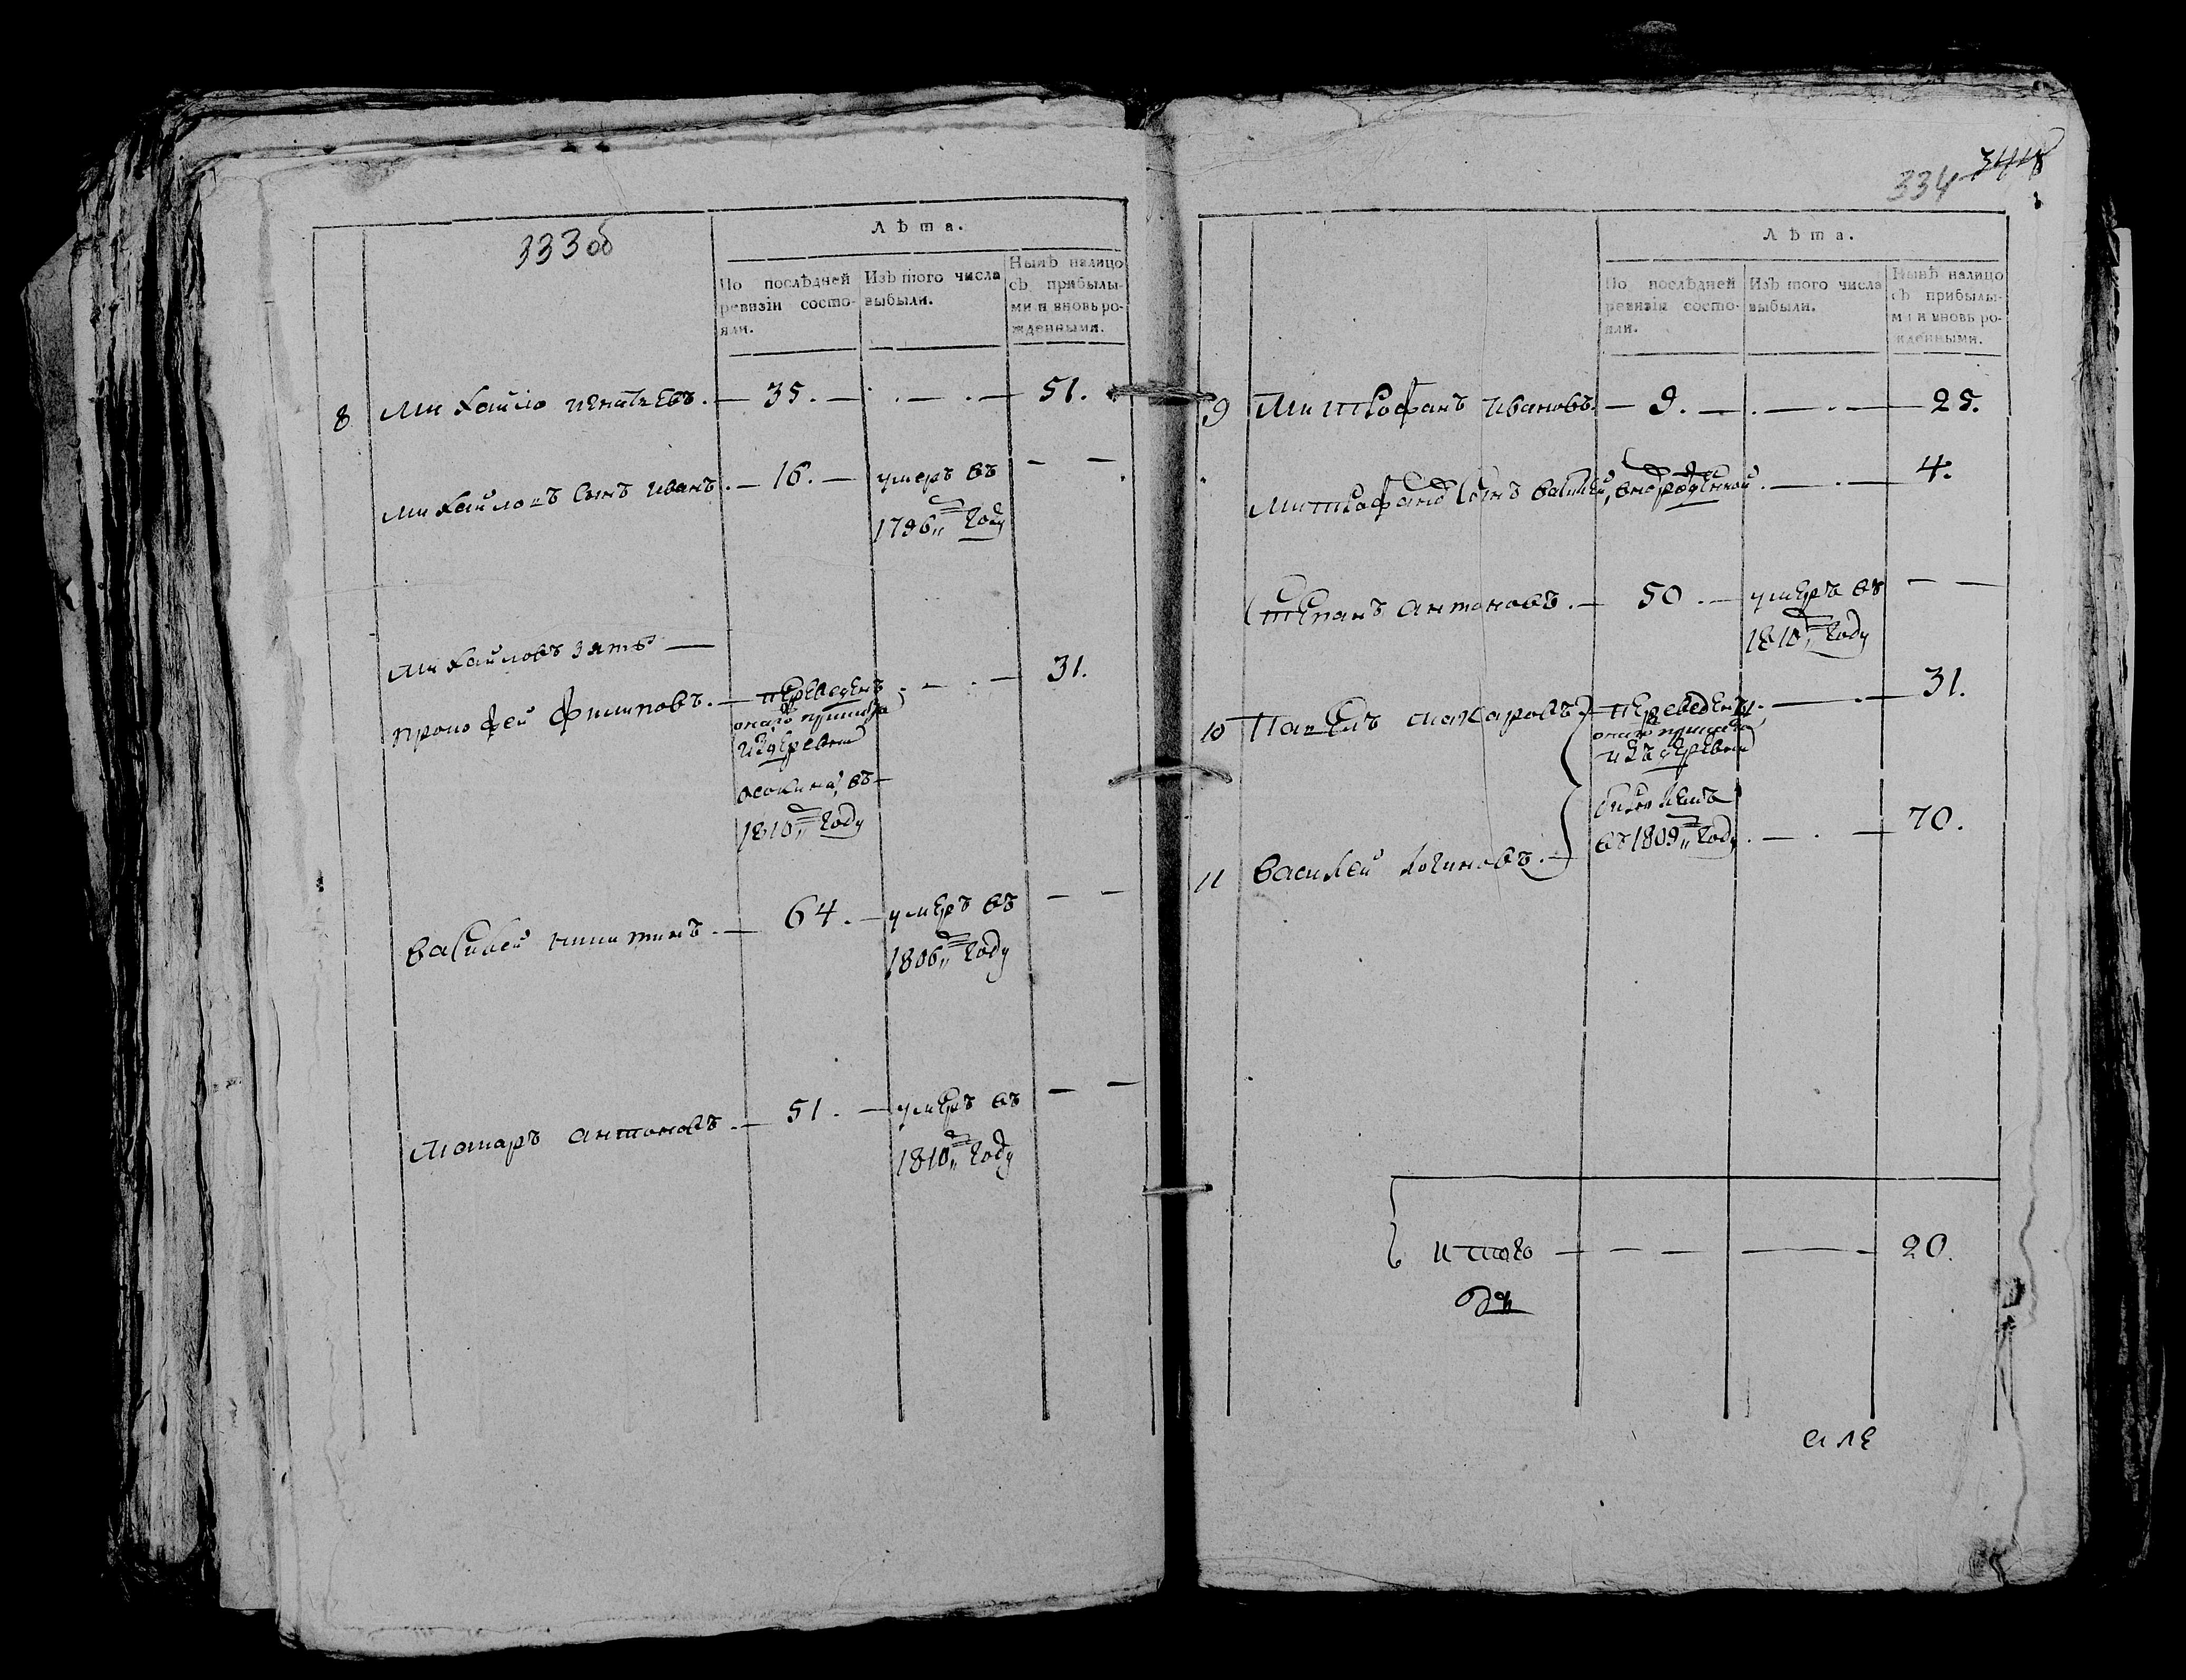 333 об
Лѣта.
По послѣдней ревизіи состояли.
Изъ того числа выбыли.
Нынѣ налицо съ прибылыми и вновь рожденными.
8 Михайло игнатьевъ. — 35. — . — . — 51.
Михайловъ сынъ иванъ. — 16. — умеръ въ — —
1796,, году
Михайловъ зять —
прокофей филиповъ. — переведенъ . — . — 31.
онаго
издеревни
въ
1810,, году
василей никитинъ. — 64. — умеръ въ — —
1806,, году
Макаръ антоновъ. — 51. — умеръ въ — —
1810,, году
334 344
Лѣта.
По послѣдней ревизіи состояли.
Изъ того числа выбыли.
Нынѣ налицо съ прибылыми и вновь рожденными.
9 Митрофанъ ивановъ. — 9. — . — . — 25.
Митрофановъ сынъ василей, вновь рожденной. — . — 4.
Степанъ антоновъ. — 50. — умеръ въ — —
1810,, году
10 Павелъ макаровъ — переведены, . — . — 31.
онаго
изъ деревни
въ 1809,, году . — . — 70.
11 василей логиновъ. —
итого — — — — 20.